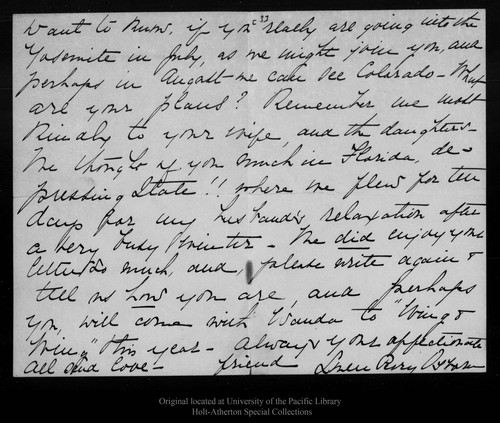 want to know, if you really are going into the
Yosemite in July, as we might join you, and
perhaps in August we can see Colorado - What
are your plans? Remember me most
kindly to your wife, and the daughters -
We thought of you much in Florida, de-
pressing State!! where we flew for ten
days for my husband's relaxation after
a very busy winter - We did enjoy your
letter so much, and, please write again &
tell us how you are, and perhaps
you, will come with Wanda to "Wing &
Wing" this year - Always your affectionate
All send love - friend Osborn
Original located at University of the Pacific Library
Holt-Atherton Special Collections